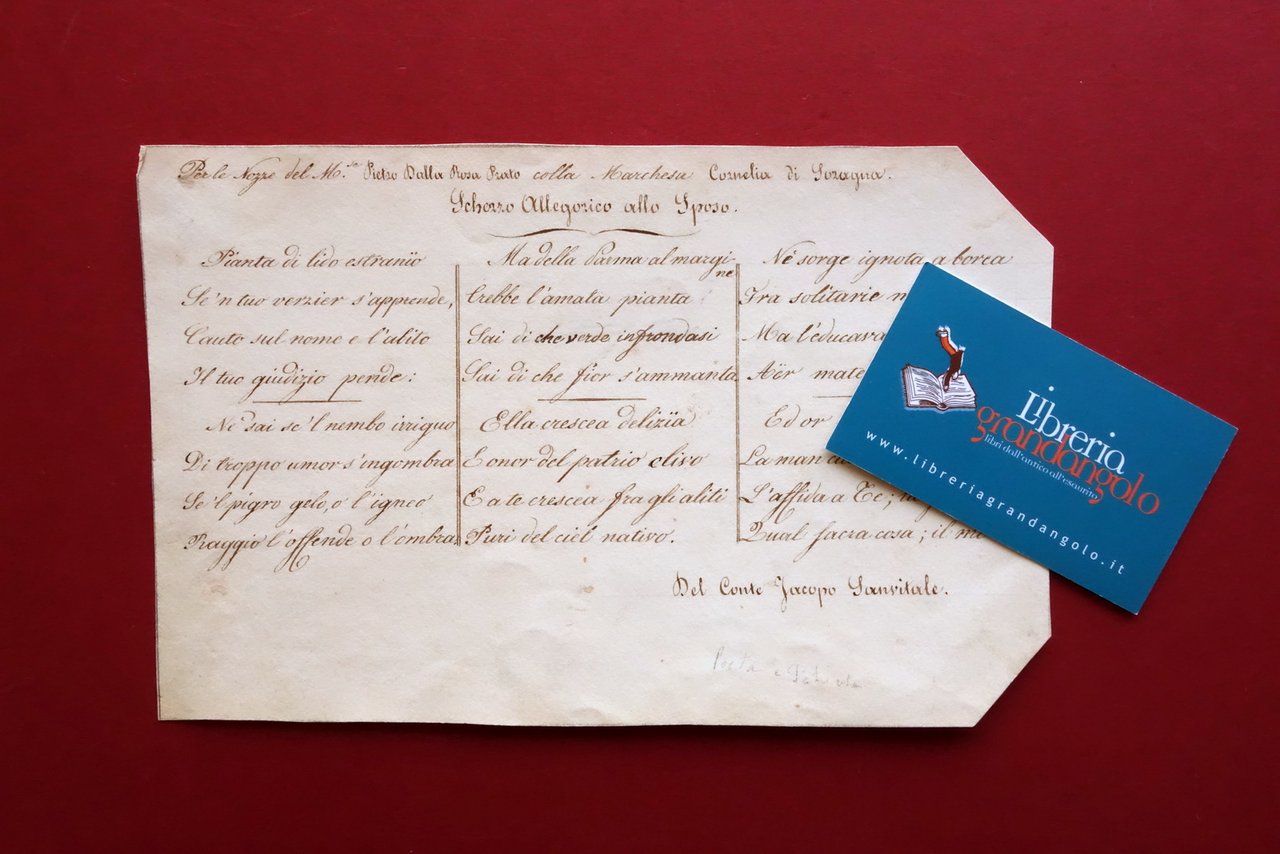 Per le Nozze del M.se Pietro Dalla Rosa Prato colla Marchesa Cornelia di Soragna.
Scherzo Allegorico allo Sposo.
Pianta di lido estranïo
Se 'n tuo verzier s'apprende,
Cauto sul nome e l'alito
Il tuo giudizio pende:
Nè sai se 'l nembo irriguo
Di troppo umor s'ingombra
Se 'l pigro gelo, o l'igneo
Raggio l'offende o l'ombra
Ma della Parma al margine
Crebbe l'amata pianta
Sai di che verde infrondasi
Sai di che fior s'ammanta
Ella crescea delizïa
E onor del patrio clivo
E a te crescea fra gli aliti
Puri del ciel nativo.
Nè sorge ignota a borea
Fra solitarie
Ma l'educava
Aër
Ed or
La man
L'affida a Te;
Qual sacra cosa; il
Del Conte Jacopo Sanvitale.
Libreria
grandangolo
libri dall'antico all'esaurito
www.libreriagrandangolo.it